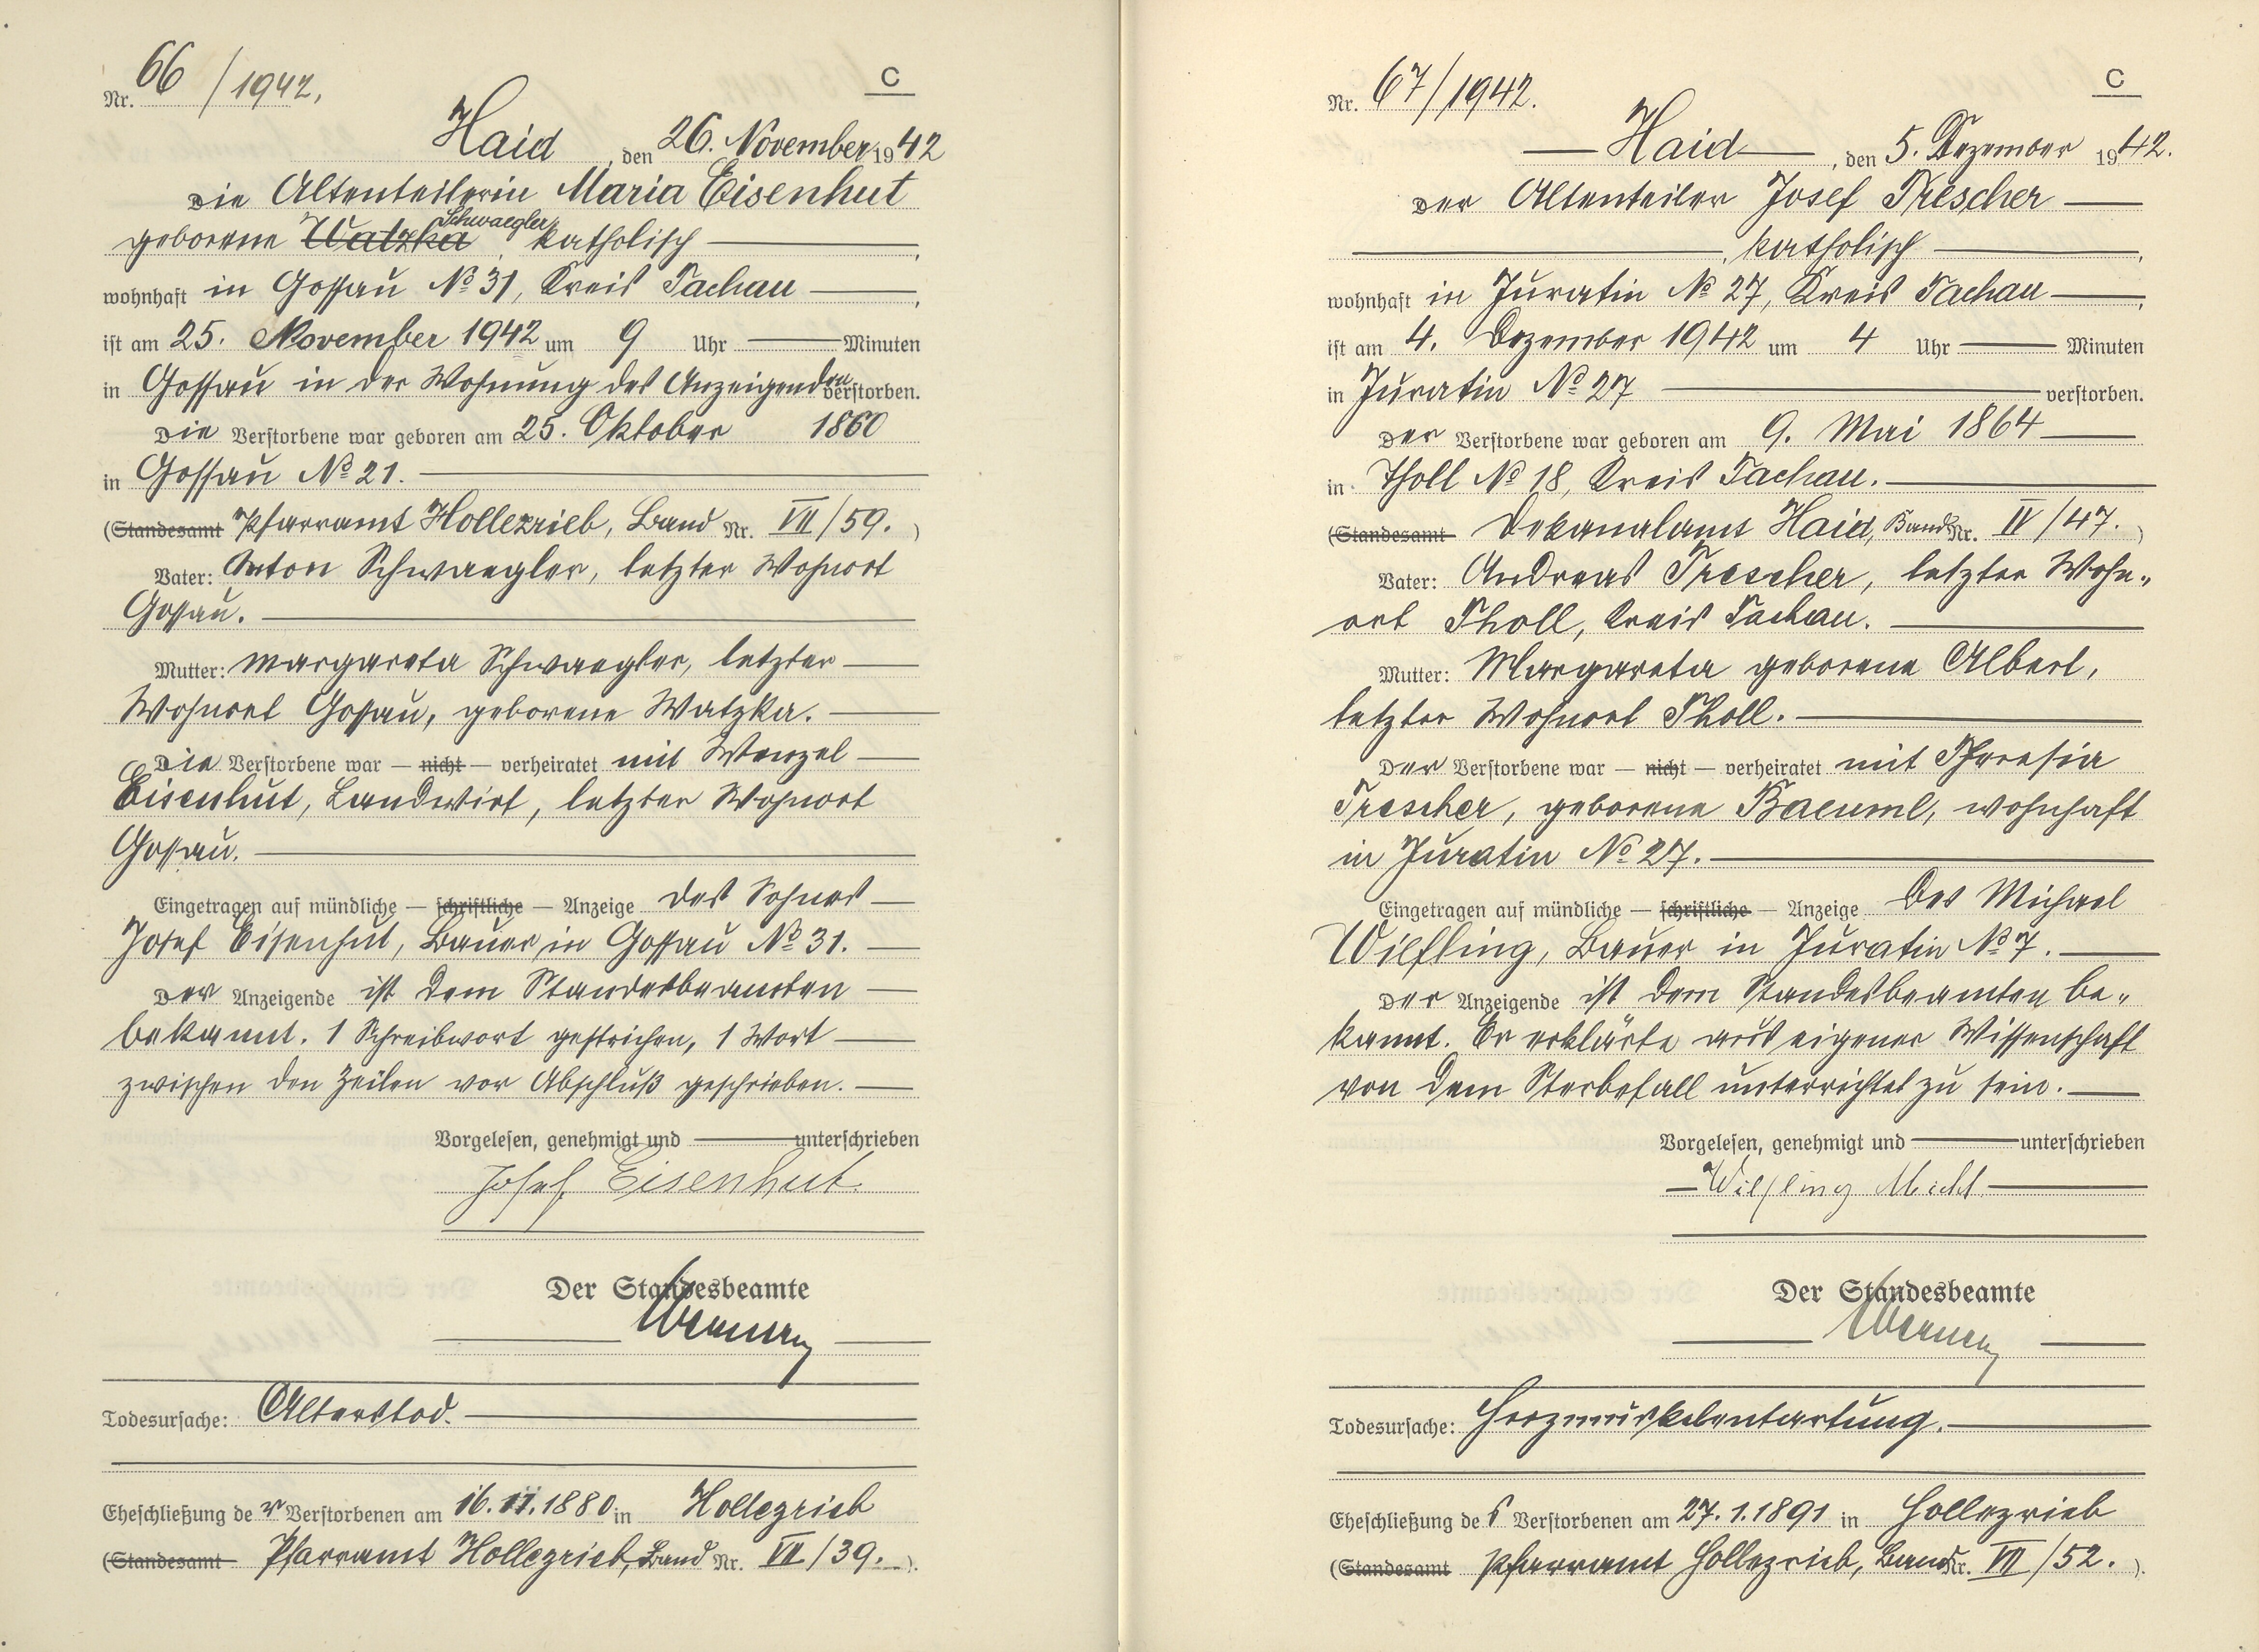 Nr. 66/1942. C
Haid, den 26. November 1942
Die Altenteilerin Maria Eisenhut
Schwaegler,
geborene Watzka, katholisch ,
wohnhaft in Gossau № 31, Kreis Tachau ,
ist am 25. November 1942 um 9 Uhr Minuten
in Gossau in der Wohnung des Anzeigenden verstorben.
Die Verstorbene war geboren am 25. Oktober 1860
in Gossau № 21.
(Standesamt Pfarramt Hollezrieb, Band Nr. VII/59. )
Vater: Anton Schwaegler, letzter Wohnort
Gossau.
Mutter: Margareta Schwaegler, letzter
Wohnort Gossau, geborene Watzka.
Die Verstorbene war — nicht — verheiratet mit Wenzel
Eisenhut, Landwirt, letzter Wohnort
Gossau.
Eingetragen auf mündliche — schriftliche — Anzeige des Sohnes
Josef Eisenhut, Bauer in Gossau № 31.
Der Anzeigende ist dem Standesbeamten
bekannt. 1 Schreibwort gestrichen, 1 Wort
zwischen den Zeilen vor Abschluß geschrieben.
Vorgelesen, genehmigt und unterschrieben
Josef Eisenhut.
Der Standesbeamte
Todesursache: Alterstod.
Eheschließung der Verstorbenen am 16.11.1880 in Hollezrieb
(Standesamt Pfarramt Hollezrieb, Band Nr. VII/39. ).
Nr. 67/1942. C
Haid, den 5. Dezember 1942.
Der Altenteiler Josef Trescher
, katholisch ,
wohnhaft in Juratin № 27, Kreis Tachau ,
ist am 4. Dezember 1942 um 4 Uhr Minuten
in Juratin № 27 verstorben.
Der Verstorbene war geboren am 9. Mai 1864
in Tholl № 18, Kreis Tachau.
(Standesamt Dekanalamt Haid, Band Nr. IV/47. )
Vater: Andreas Trescher, letzter Wohn-
ort Tholl, Kreis Tachau.
Mutter: Margareta geborene Albert,
letzter Wohnort Tholl.
Der Verstorbene war — nicht — verheiratet mit Theresia
Trescher, geborene Baeuml, wohnhaft
in Juratin № 27.
Eingetragen auf mündliche — schriftliche — Anzeige des Michael
Wilfling, Bauer in Juratin № 7.
Der Anzeigende ist dem Standesbeamten be-
kannt. Er erklärte aus eigener Wissenschaft
von dem Sterbefall unterrichtet zu sein.
Vorgelesen, genehmigt und unterschrieben
Wilfling Michl
Der Standesbeamte
Todesursache: Herzmuskelentartung.
Eheschließung des Verstorbenen am 27.1.1891 in Hollezrieb
(Standesamt Pfarramt Hollezrieb, Band Nr. VII/52. ).